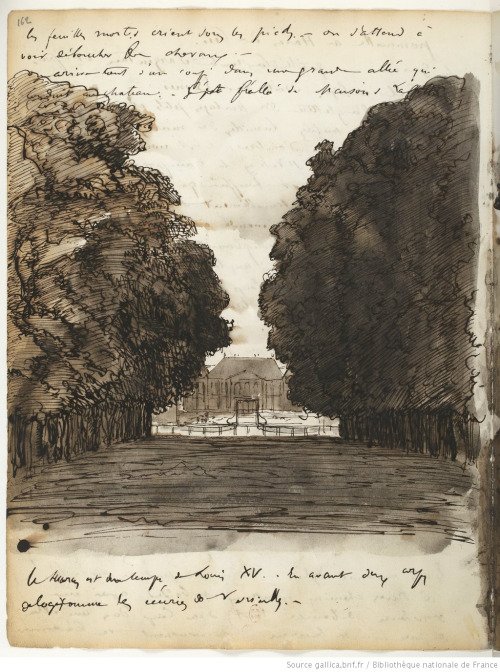 162
les feuilles mortes crient sous les pieds — on s'attend à
voir déboucher
on arrive tout d'un coup dans une grande allée qui
château. de Maisons
Le Haras est du temps de Louis XV. En avant deux corps
de logis comme les écuries de Versailles. —
Source gallica.bnf.fr / Bibliothèque nationale de France